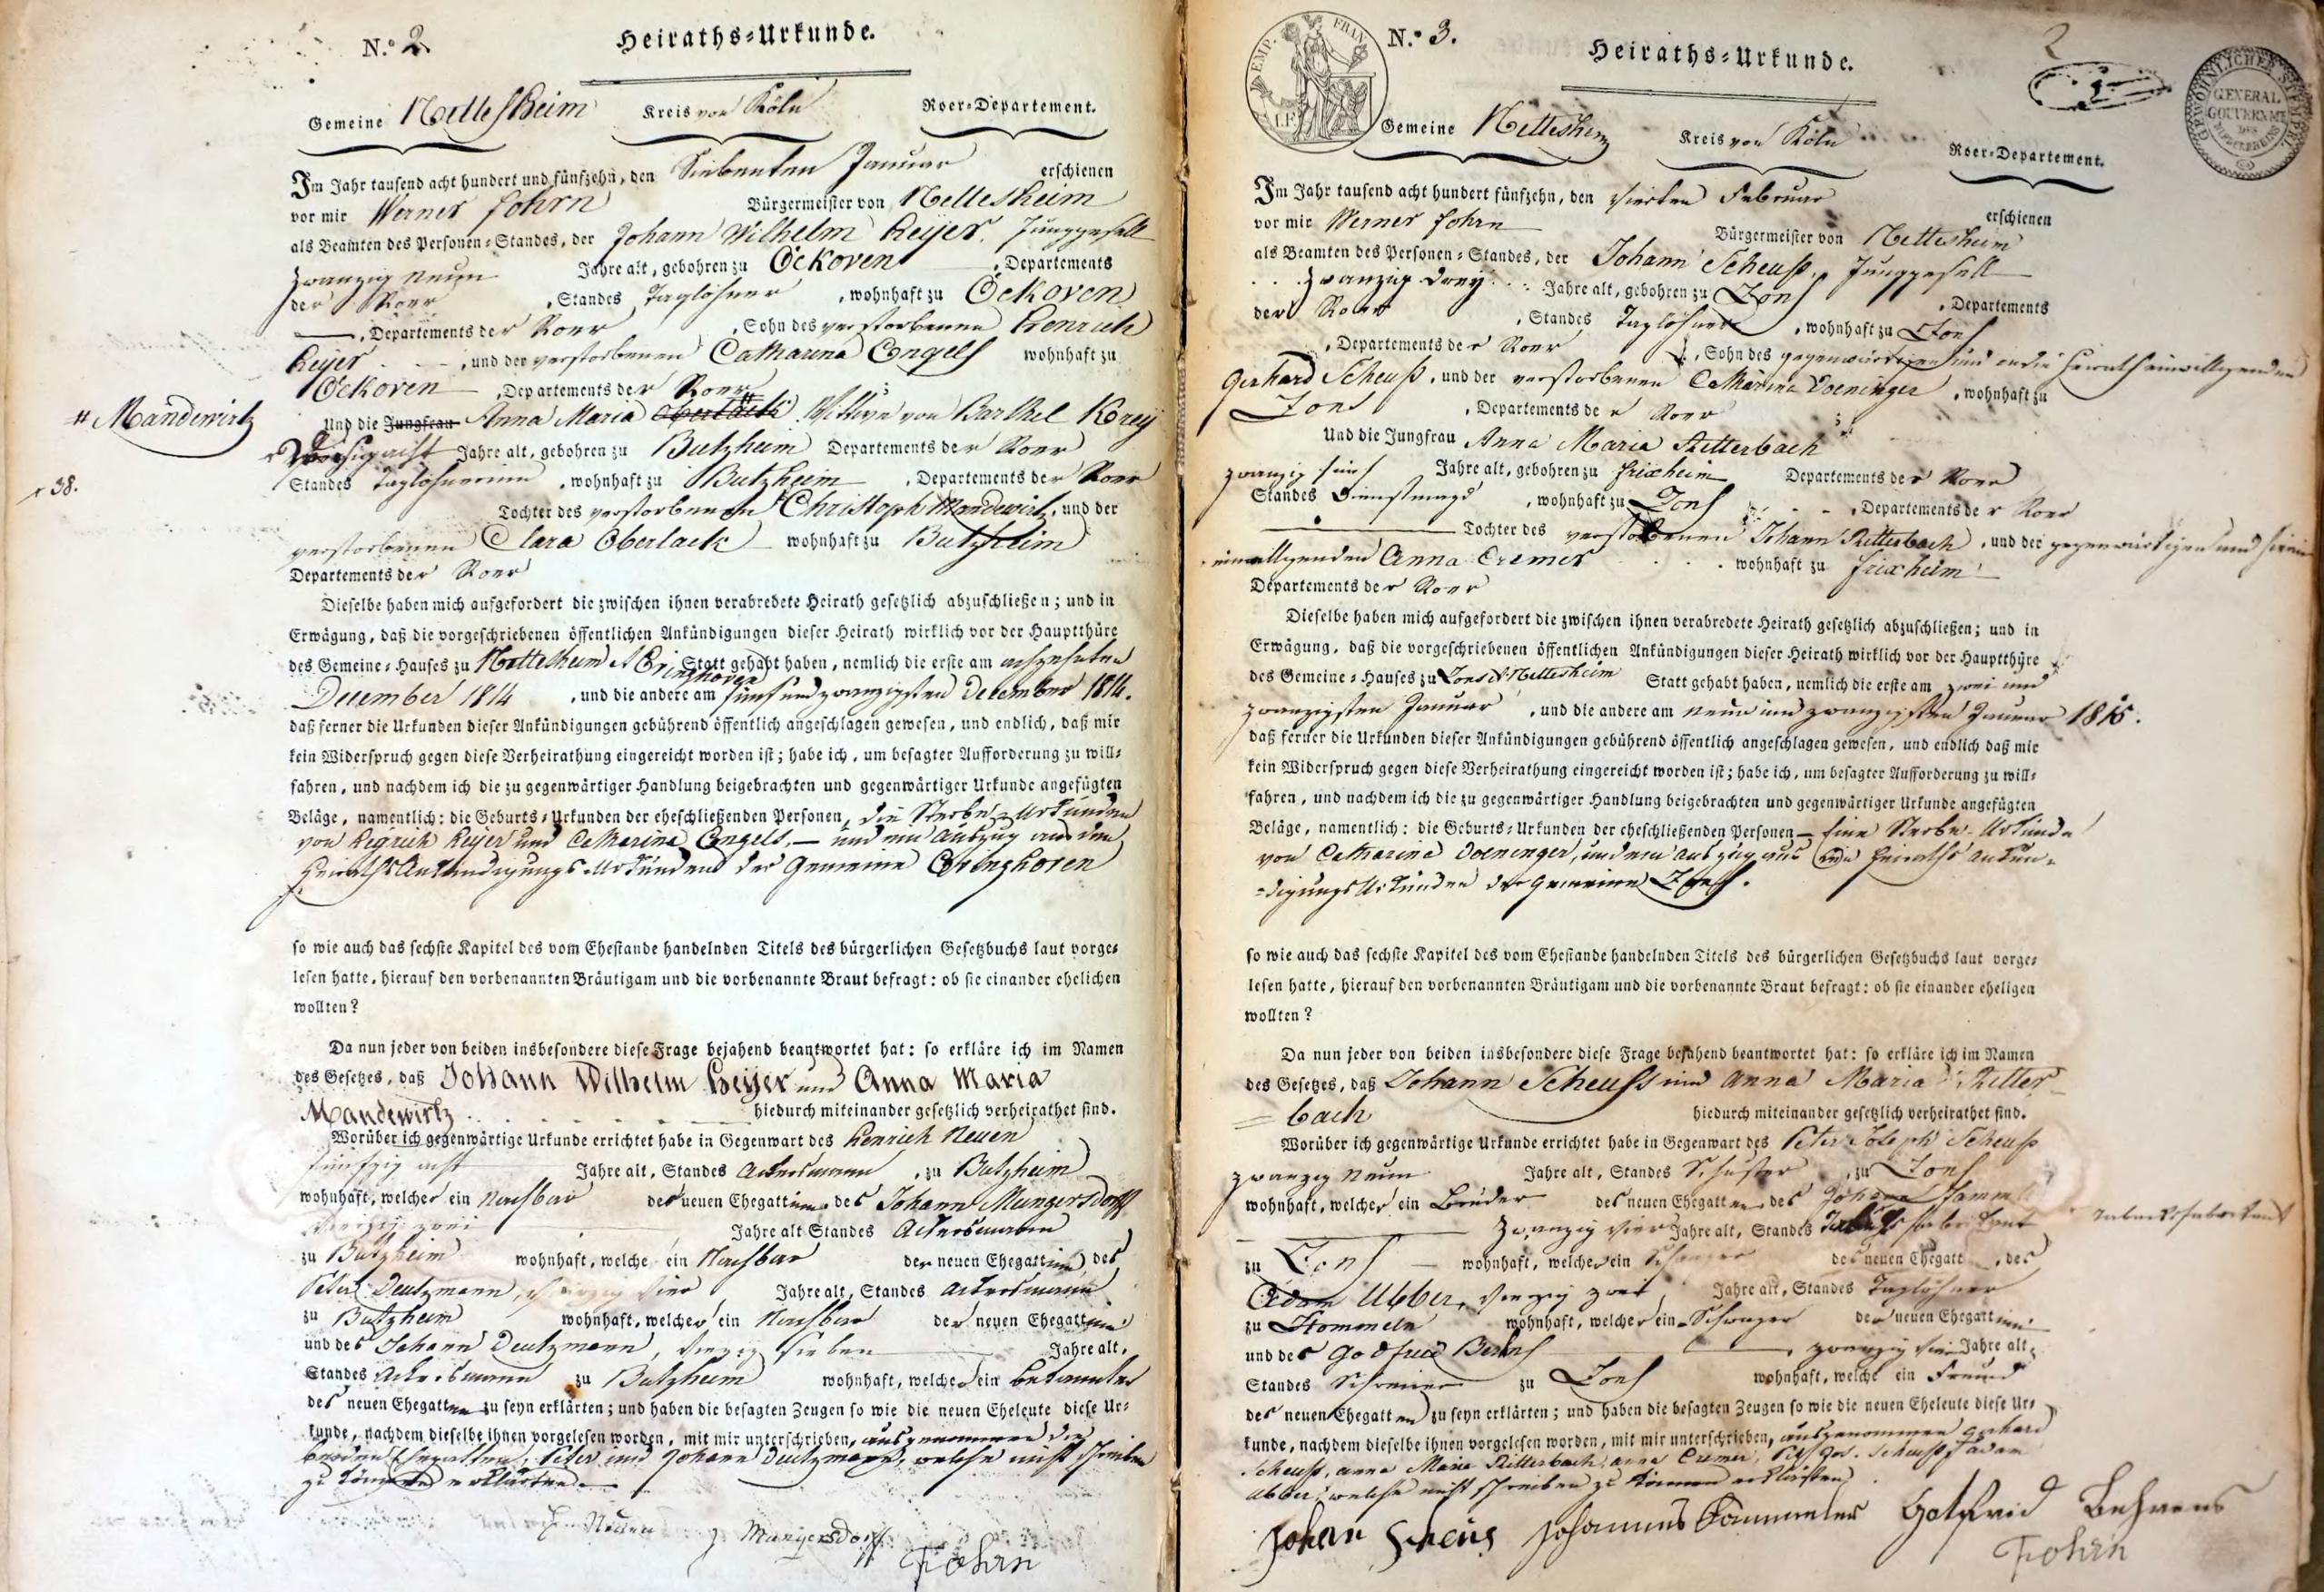 N.º 2.
Heiraths-Urkunde.
Gemeine Nettesheim Kreis von Köln Roer-Departement.
Im Jahr tausend acht hundert und fünfzehn, den Siebenten Januar erschienen
vor mir Werner Fohrn Bürgermeister von Nettesheim
als Beamten des Personen-Standes, der Johann Wilhelm Heyer. Junggesell
zwanzig neun Jahre alt, gebohren zu Öckoven, Departements
der Roer, Standes Taglöhner, wohnhaft zu Öckoven
, Departements der Roer, Sohn des verstorbenen Henrich
Heyer, und der verstorbenen Catharina Engels wohnhaft zu
Öckoven, Departements der Roer
# Mandewirtz
Und die Jungfrau Anna Maria Oberlack Wittwe von Barthel Krey
acht Jahre alt, gebohren zu Butzheim Departements der Roer
38.
Standes Taglöhnerinn, wohnhaft zu Butzheim, Departements der Roer
Tochter des verstorbenen Christoph Mandewirtz, und der
verstorbenen Clara Oberlack wohnhaft zu Butzheim
Departements der Roer
Dieselbe haben mich aufgefordert die zwischen ihnen verabredete Heirath gesetzlich abzuschließen; und in
Erwägung, daß die vorgeschriebenen öffentlichen Ankündigungen dieser Heirath wirklich vor der Hauptthüre
des Gemeine-Hauses zu Nettesheim & Evinghoven Statt gehabt haben, nemlich die erste am achzehnten
December 1814, und die andere am fünf und zwanzigsten December 1814.
daß ferner die Urkunden dieser Ankündigungen gebührend öffentlich angeschlagen gewesen, und endlich, daß mir
kein Widerspruch gegen diese Verheirathung eingereicht worden ist; habe ich, um besagter Aufforderung zu will-
fahren, und nachdem ich die zu gegenwärtiger Handlung beigebrachten und gegenwärtiger Urkunde angefügten
Beläge, namentlich: die Geburts-Urkunden der eheschließenden Personen, die Sterbe-Urkunden
von Heyer und Catharina Engels, — und ein Auszug aus den
Heiraths Ankündigungs-Urkunden der Gemeine Evenghoven
so wie auch das sechste Kapitel des vom Ehestande handelnden Titels des bürgerlichen Gesetzbuchs laut vorge-
lesen hatte, hierauf den vorbenannten Bräutigam und die vorbenannte Braut befragt: ob sie einander ehelichen
wollten?
Da nun jeder von beiden insbesondere diese Frage bejahend beantwortet hat: so erkläre ich im Namen
des Gesetzes, daß Johann Wilhelm Heyer und Anna Maria
Mandewirtz hiedurch miteinander gesetzlich verheirathet sind.
Worüber ich gegenwärtige Urkunde errichtet habe in Gegenwart des Henrich Neuen
fünfzig acht Jahre alt, Standes Ackersmann, zu Butzheim
wohnhaft, welcher ein Nachbar der neuen Ehegattinn des Johann Mungersdorff
vierzig zwei Jahre alt Standes Ackersmann
zu Butzheim wohnhaft, welche ein Nachbar der neuen Ehegattinn, des
Peter Deutzmann, vierzig vier Jahre alt, Standes Ackersmann
zu Butzheim wohnhaft, welcher ein Nachbar der neuen Ehegattinn
und des Johann Deutzmann, vierzig sieben Jahre alt,
Standes Ackersmann zu Butzheim wohnhaft, welcher ein Bekannter
des neuen Ehegatten zu seyn erklärten; und haben die besagten Zeugen so wie die neuen Eheleute diese Ur-
kunde, nachdem dieselbe ihnen vorgelesen worden, mit mir unterschrieben, ausgenommen die
beiden Ehegatten, Peter und Johann Deutzmann, welche nicht schreiben
zu können erklärten.
H Neuen J Mungersdorff
Fohrn
EMP. FRAN.
N.º 3.
Heiraths-Urkunde.
2
GEWÖHNLICHER STEMPEL
GENERAL GOUVERNMT DES NIEDERRHEINS
Gemeine Nettesheim Kreis von Köln Roer-Departement.
Im Jahr tausend acht hundert fünfzehn, den vierten Februar erschienen
vor mir Werner Fohrn Bürgermeister von Nettesheim
als Beamten des Personen-Standes, der Johann Scheuß, Junggesell
zwanzig drey Jahre alt, gebohren zu Zons, Departements
der Roer, Standes Taglöhner, wohnhaft zu Zons
, Departements der Roer, Sohn des gegenwärtigen und in die Heirath einwilligenden
Gerhard Scheuß, und der verstorbenen Catharina Doeninger, wohnhaft zu
Zons, Departements der Roer
Und die Jungfrau Anna Maria Ritterbach
zwanzig fünf Jahre alt, gebohren zu Frixheim Departements der Roer
Standes Dienstmagd, wohnhaft zu Zons, Departements der Roer
Tochter des verstorbenen Johann Ritterbach, und der gegenwärtigen und hierin
einwilligenden Anna Cremer wohnhaft zu Frixheim
Departements der Roer
Dieselbe haben mich aufgefordert die zwischen ihnen verabredete Heirath gesetzlich abzuschließen; und in
Erwägung, daß die vorgeschriebenen öffentlichen Ankündigungen dieser Heirath wirklich vor der Hauptthüre
des Gemeine-Hauses zu Zons & Nettesheim Statt gehabt haben, nemlich die erste am zwei und
zwanzigsten Januar, und die andere am neun und zwanzigsten Januar 1815.
daß ferner die Urkunden dieser Ankündigungen gebührend öffentlich angeschlagen gewesen, und endlich daß mir
kein Widerspruch gegen diese Verheirathung eingereicht worden ist; habe ich, um besagter Aufforderung zu will-
fahren, und nachdem ich die zu gegenwärtiger Handlung beigebrachten und gegenwärtiger Urkunde angefügten
Beläge, namentlich: die Geburts-Urkunden der eheschließenden Personen — Eine Sterbe-Urkunde
von Catharina Doeninger, und ein Auszug aus den Heiraths Ankün-
-digungs Urkunden der Gemeine Zons.
so wie auch das sechste Kapitel des vom Ehestande handelnden Titels des bürgerlichen Gesetzbuchs laut vorge-
lesen hatte, hierauf den vorbenannten Bräutigam und die vorbenannte Braut befragt: ob sie einander eheligen
wollten?
Da nun jeder von beiden insbesondere diese Frage bejahend beantwortet hat: so erkläre ich im Namen
des Gesetzes, daß Johann Scheuß und Anna Maria Ritter-
=bach hiedurch miteinander gesetzlich verheirathet sind.
Worüber ich gegenwärtige Urkunde errichtet habe in Gegenwart des Peter Joseph Scheuß
zwanzig neun Jahre alt, Standes Schuster, zu Zons
wohnhaft, welcher ein Bruder des neuen Ehegatten des Johann
zwanzig vier Jahre alt, Standes
zu Zons wohnhaft, welcher ein Schwager des neuen Ehegatt, des
Adam Ubber, vierzig zwei Jahre alt, Standes Taglöhner
zu Stommeln wohnhaft, welcher ein Schwager der neuen Ehegattinn
und des Godfried Behrns zwanzig vier Jahre alt,
Standes Schreiner zu Zons wohnhaft, welche ein Freund
des neuen Ehegatten zu seyn erklärten; und haben die besagten Zeugen so wie die neuen Eheleute diese Ur-
kunde, nachdem dieselbe ihnen vorgelesen worden, mit mir unterschrieben, ausgenommen Gerhard
Scheuß, Anna Maria Ritterbach, Anna Cremer, Pet. Jos. Scheuß, Adam
Ubber, welche nicht schreiben zu können erklärten
Johan Scheus Johannes Hammeler Gotfrid Behrens
Fohrn